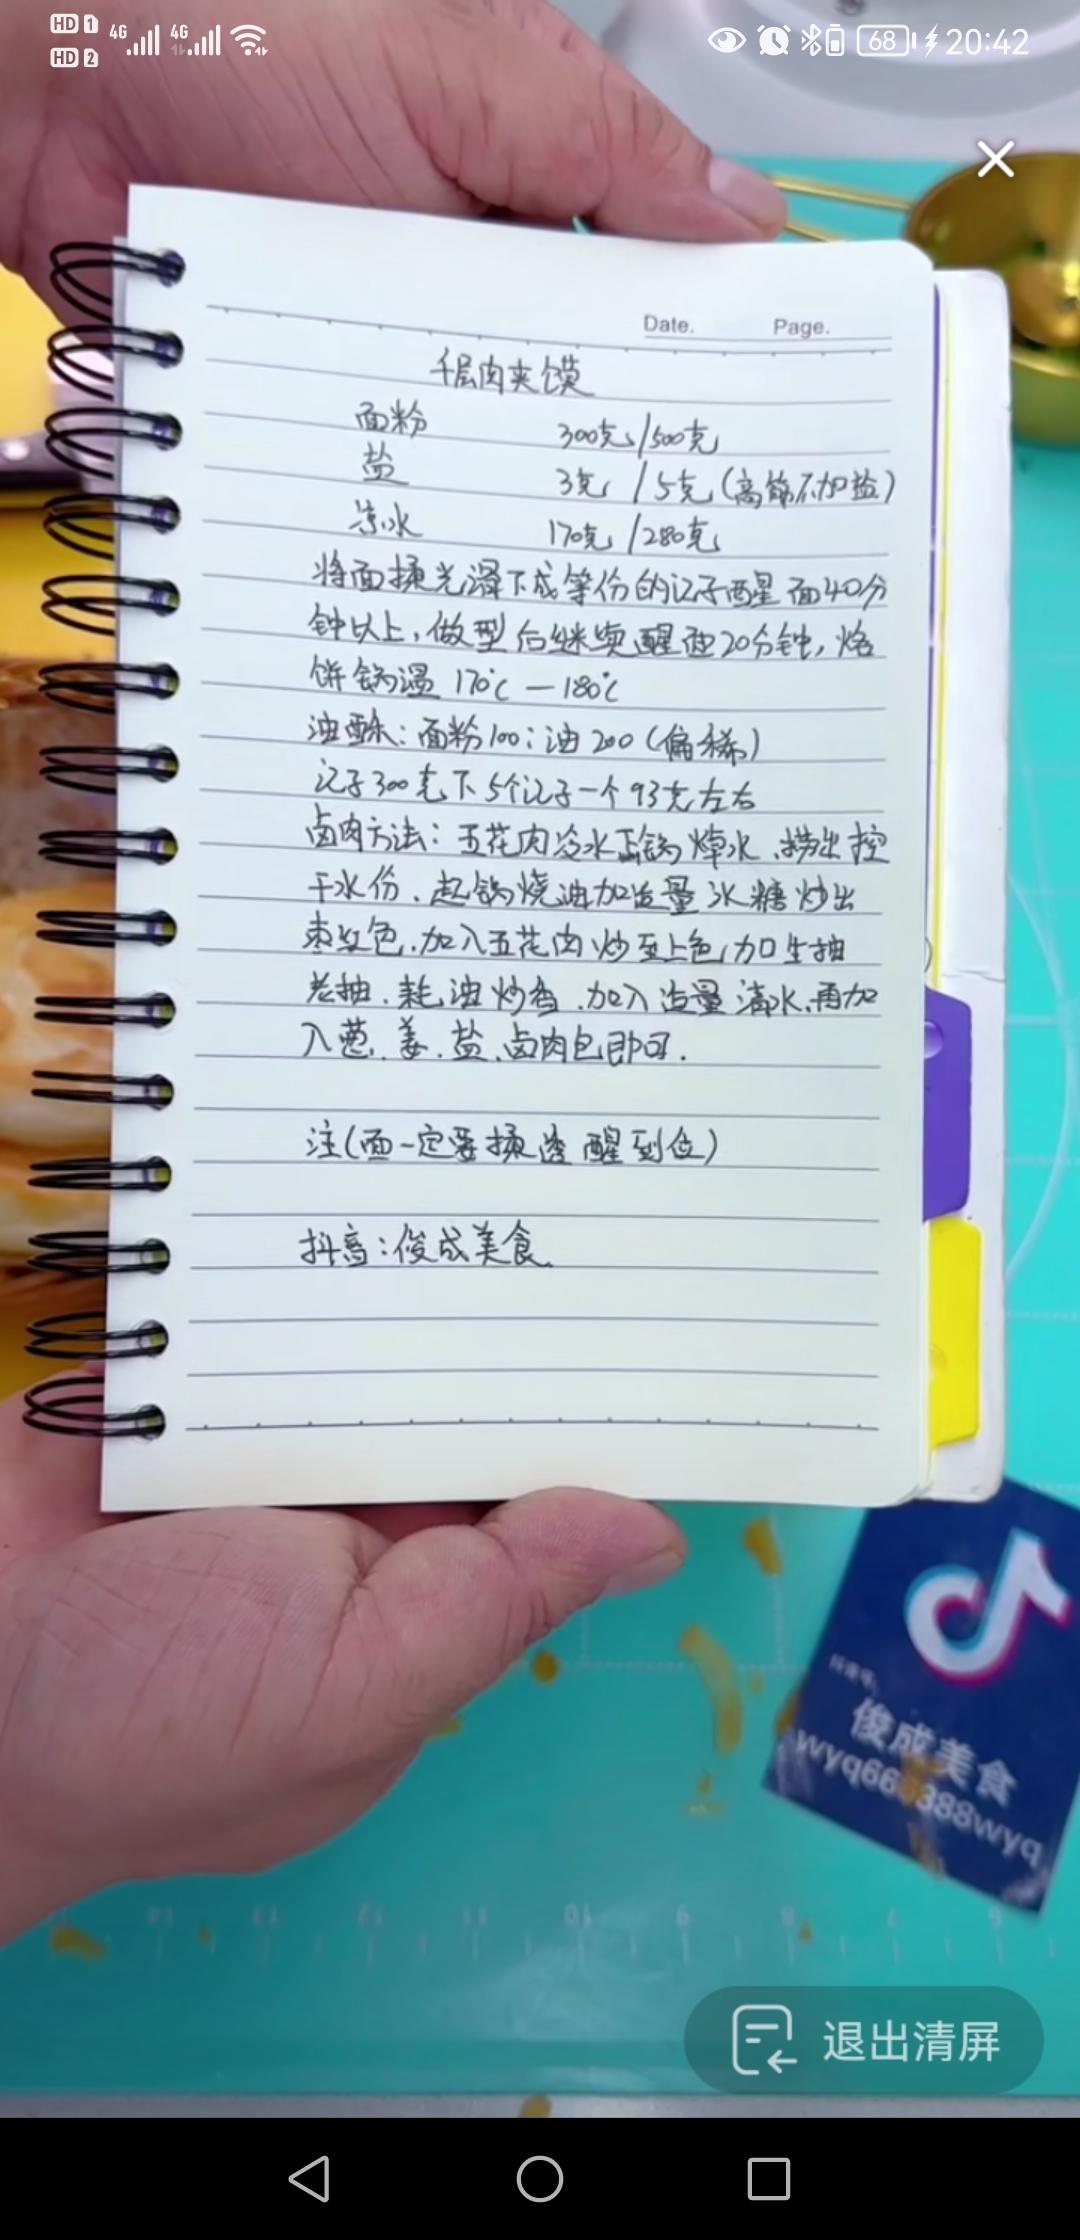 HD 1 4G 4G
HD 2
68 20:42
Date. Page.
千层肉夹馍
面粉 300克/500克
盐 3克 / 5克(高筋不加盐)
凉水 170克/280克
将面揉光滑下成等份的记子醒面40分
钟以上,做型后继续醒面20分钟,烙
饼锅温 170℃—180℃
油酥:面粉100:油200(偏稀)
记子300克下5个记子一个93克左右
卤肉方法:五花肉冷水下锅焯水、捞出控
干水份、起锅烧油加适量冰糖炒出
枣红色、加入五花肉炒至上色加生抽
老抽、耗油炒香、加入适量清水、再加
入葱、姜、盐、卤肉包即可.
注(面一定要揉透 醒到位)
抖音:俊成美食
俊成美食
14 13 12 11 10 9 8 7 6
退出清屏